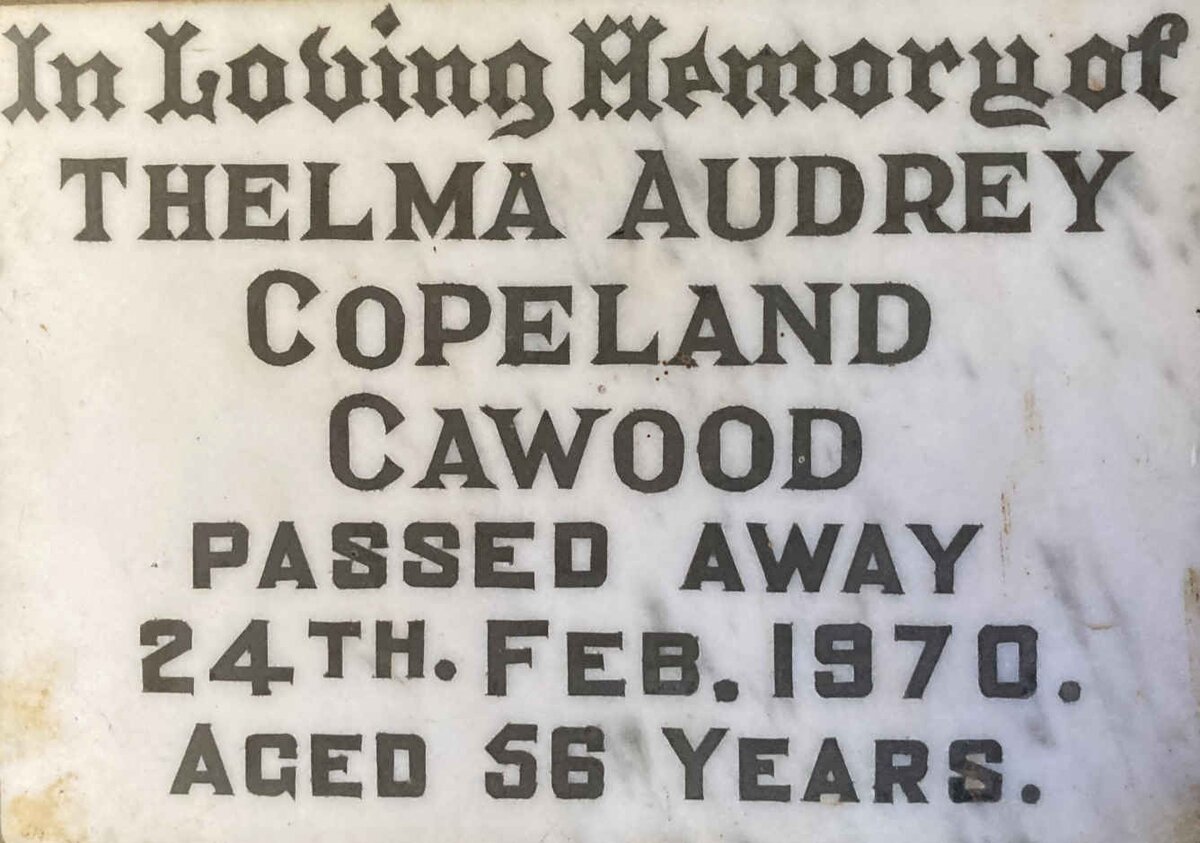 In Loving Memory of
THELMA AUDREY
COPELAND
CAWOOD
PASSED AWAY
24TH. FEB. 1970.
AGED 56 YEARS.